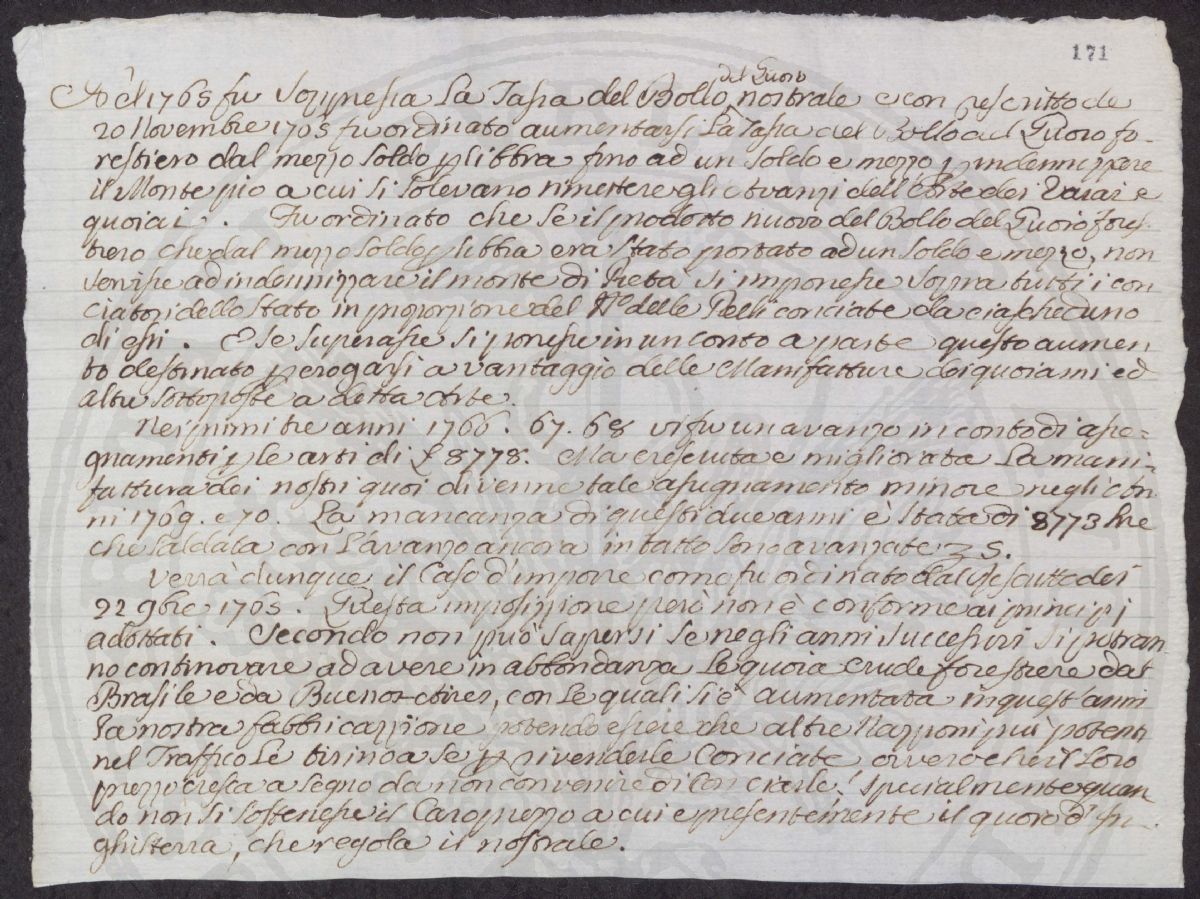 171
Nel 1765 fu soppressa la Tassa del Bollo del Quoio nostrale e con rescritto de
20 Novembre 1765 fu ordinato aumentarsi la Tassa del Bollo del Quoio fo-
restiero dal mezzo soldo p libbra fino ad un soldo e mezzo p indennizzare
il Monte pio a cui si solevano rimettere gli avanzi dell'Arte dei Vaiai e
quoiai. Fu ordinato che se il prodotto nuovo del Bollo del Quoio fores-
tiero che dal mezzo soldo p libbra era stato portato ad un soldo e mezzo, non
venisse ad indennizzare il monte di Pietà si imponesse sopra tutti i con
ciatori dello stato in proporzione del N.o delle Pelli conciate da ciascheduno
di essi. E se superasse si ponesse in un conto a parte questo aumen
to destinato p erogarsi a vantaggio delle Manifatture dei quoiami ed
altre sottoposte a detta Arte.
Nei primi tre anni 1766. 67. 68 vi fu un avanzo in conto di asse-
gnamenti p le arti di £ 8778. Ma cresciuta e migliorata la mani-
fattura dei nostri quoi divenne tale assegnamento minore negli an-
ni 1769. e 70. La mancanza di questi due anni è stata di 8773 lire
che saldata con l'avanzo ancora intatto sono avanzate £ 5.
Verrà dunque il Caso d'imporre come fu ordinato dal Rescritto dei
22 9bre 1765. Questa imposizione però non è conforme ai principj
adottati. Secondo non può sapersi se negli anni successivi si potran
no continovare ad avere in abbondanza le quoia crude forestiere dal
Brasile e da Buenos-Aires, con le quali si è aumentata in quest'anni
la nostra fabbricazzione potendo essere che altre Nazzioni più potenti
nel Traffico le tirino a se p rivenderle conciate ovvero che il loro
prezzo cresca a segno da non convenire di conciarle! specialmente quan
do non si sostenesse il Caro prezzo a cui è presentemente il quoio d'In-
ghilterra, che regola il nostrale.